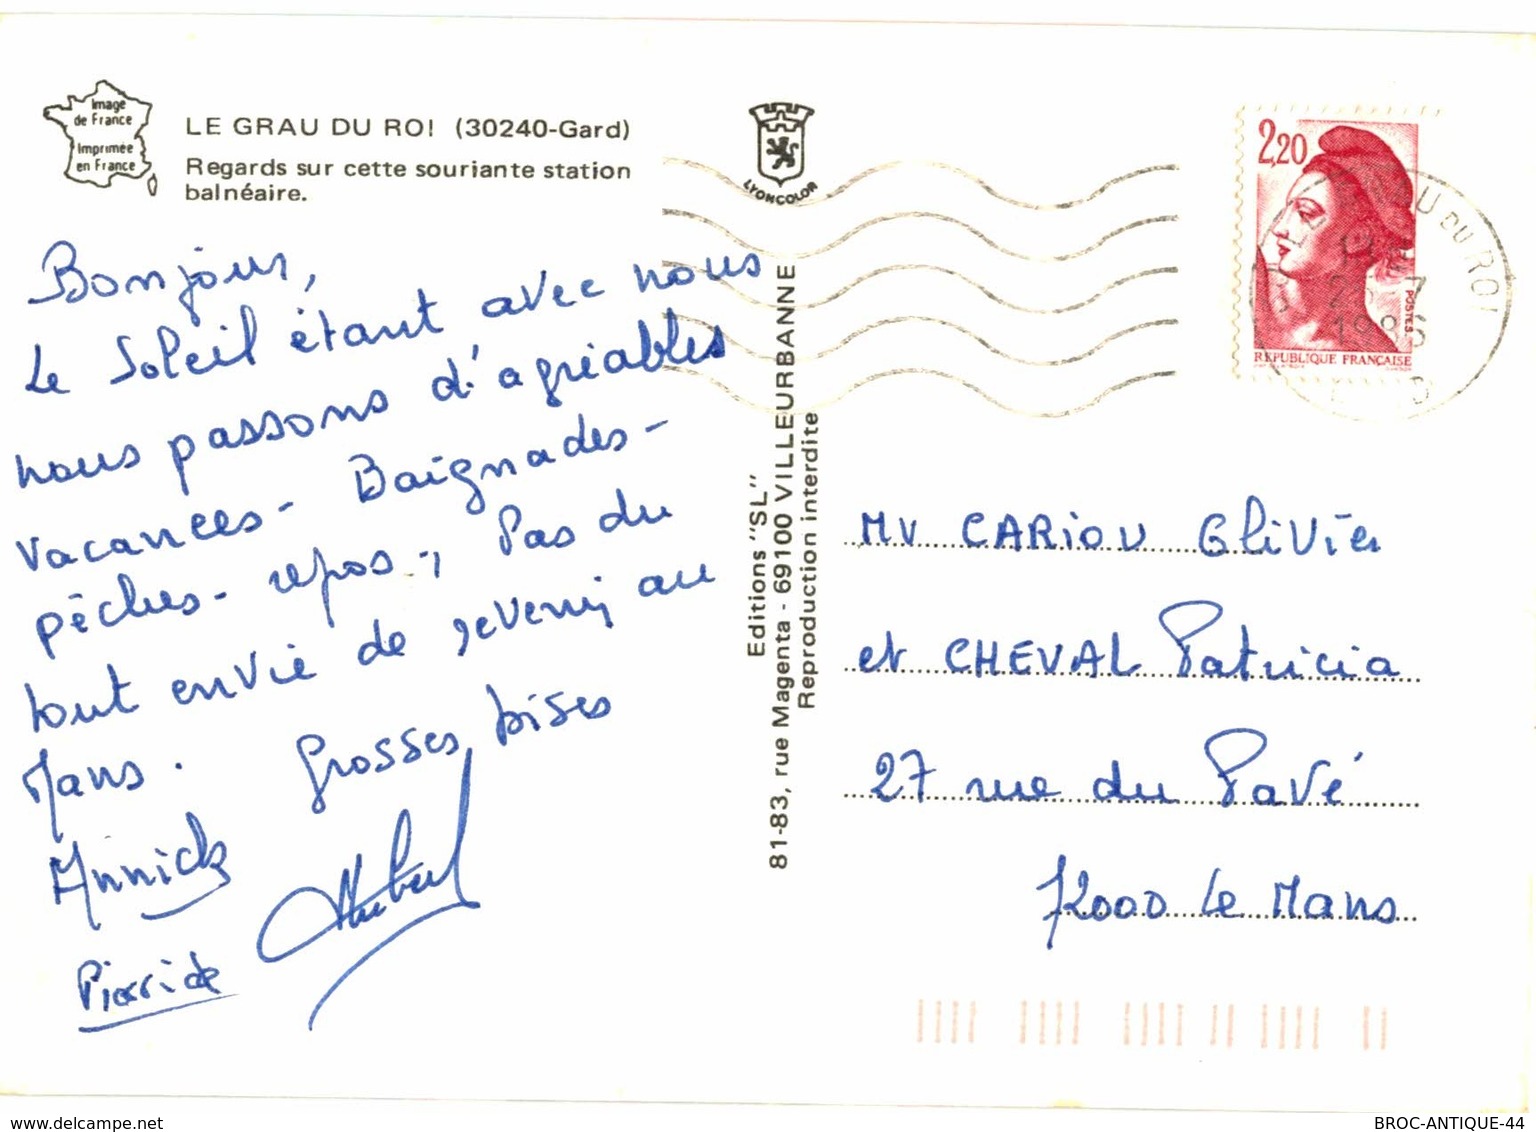 Image
de France
Imprimée
en France
LE GRAU DU ROI (30240-Gard)
Regards sur cette souriante station
balnéaire.
LYONCOLOR
2,20
POSTES
REPUBLIQUE FRANÇAISE
U DU ROI
7
1986
Bonjour,
Le Soleil étant avec nous
nous passons d'agréables
vacances - Baignades -
pêches - repos -, Pas du
tout envie de revenir au
Mans. Grosses bises
Annick
Hubert
Editions "SL"
81-83, rue Magenta - 69100 VILLEURBANNE
Reproduction interdite
CARIOU Olivier
et CHEVAL Patricia
27 rue du Pavé
72000 Le Mans
BROC-ANTIQUE-44